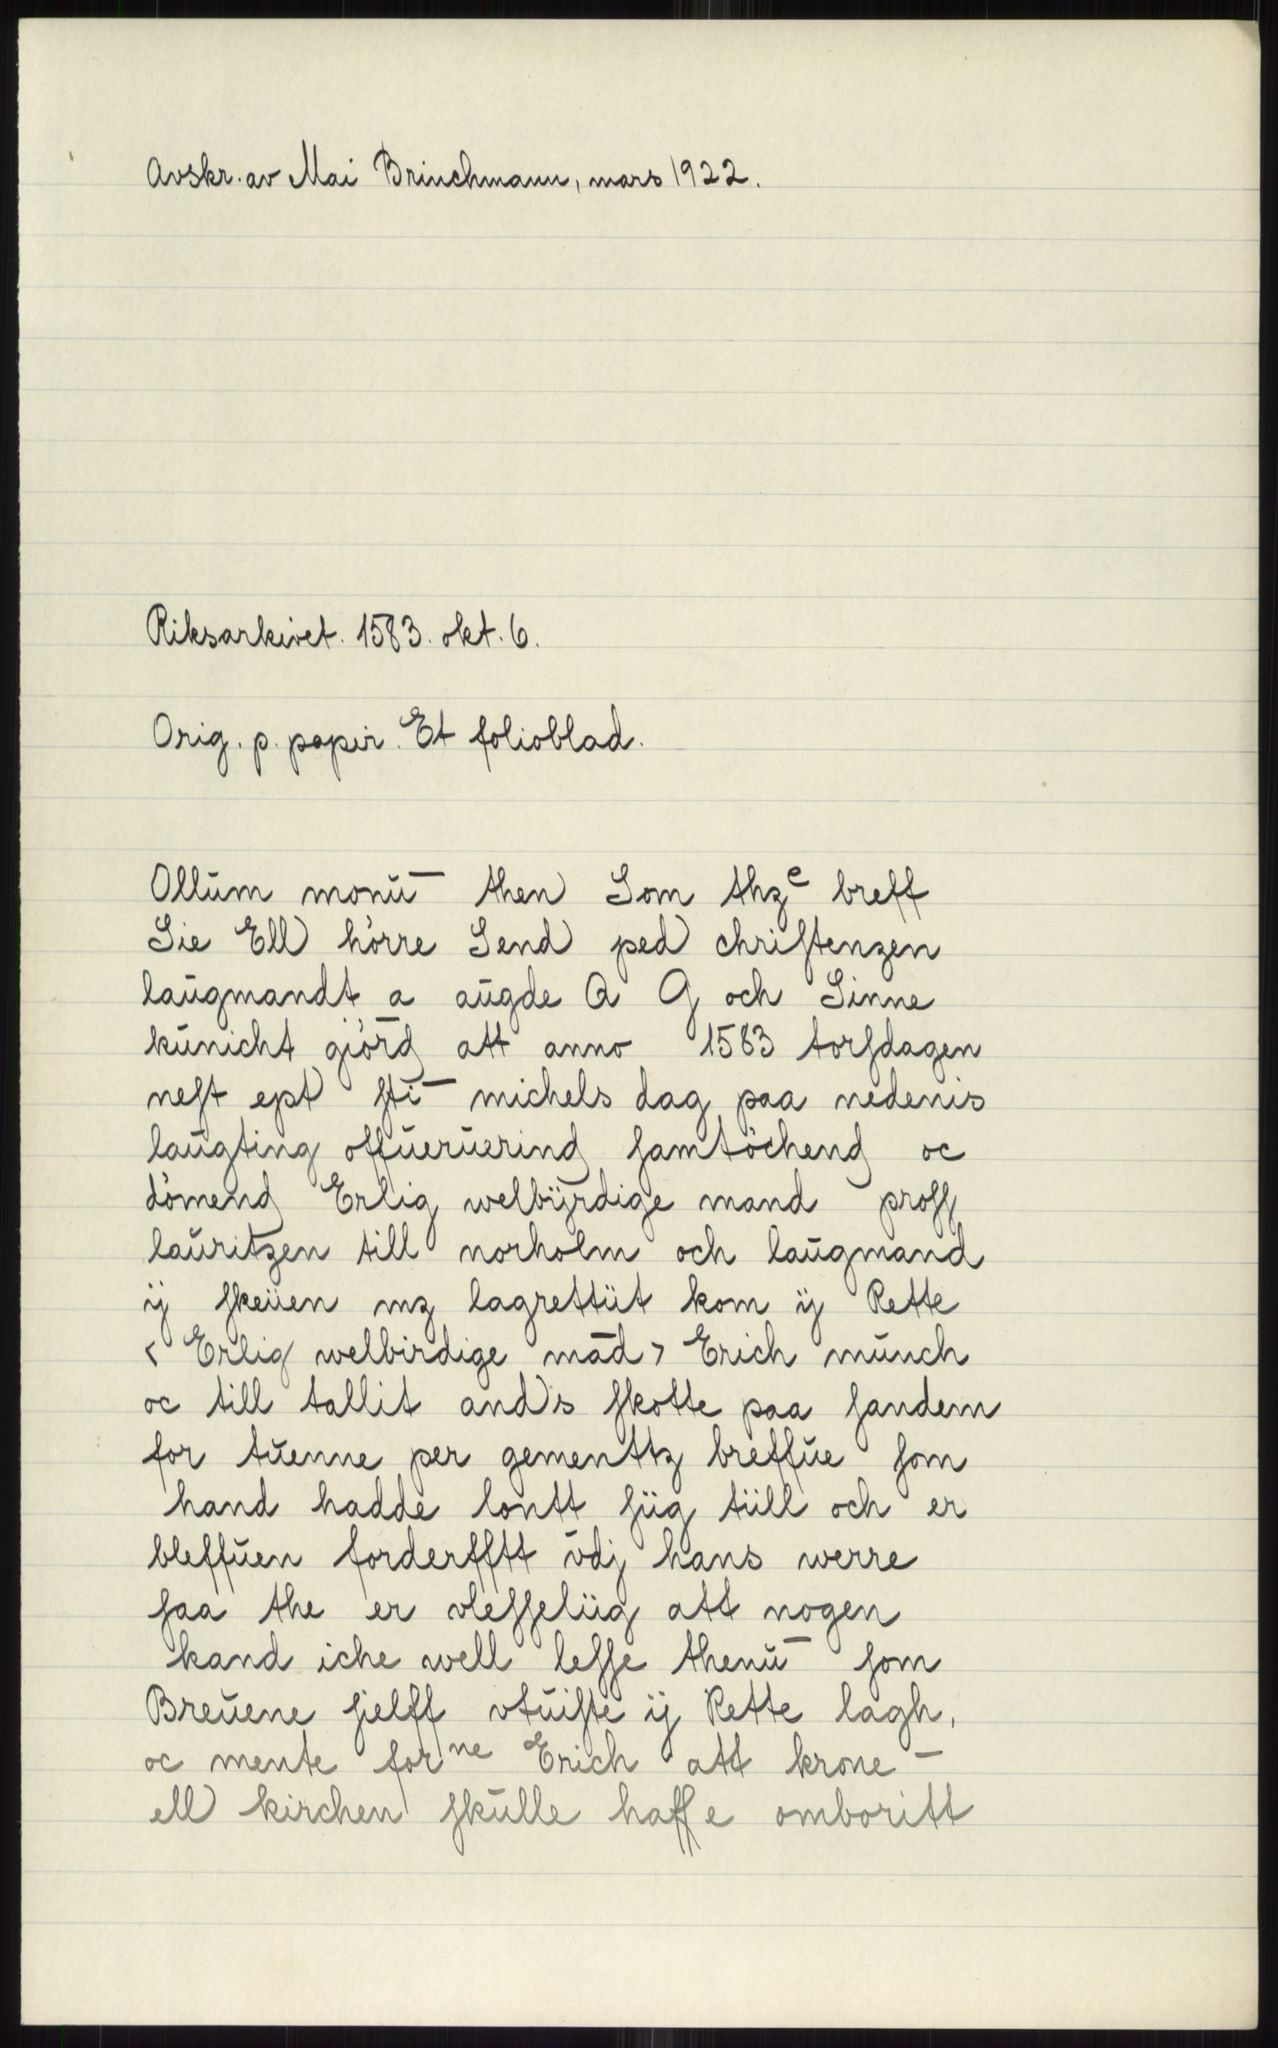 Avskr. av Mai Brinchmann, mars 1922.
Riksarkivet. 1583. okt. 6.
Orig. p. papir. Et folioblad.
Ollŭm monŭ¯ then Som thzᵉ breff
Sie Ell hörre Send ped chriſtenzen
laŭgmandt a aŭgde Q G och Sinne
kŭnicht giörd att anno 1583 torſdagen
neſt ept ſti¯ michels dag paa nedenis
laŭgting offŭerŭerind ſamtöchend oc
dömend Erlig welbÿrdige mand proſſ
laŭritzen till norholm och laŭgmand
ÿ ſkeŭen mz lagrettüt kom ÿ Rette
< Erlig welbirdige mād > Erich mŭnch
oc till tallit ands ſkotte paa ſandem
for tŭenne per gementtz breffŭe ſom
hand hadde lontt ſüg tüll och er
bleffŭen forderfftt vdj hans werre
ſaa the er vleſſelüg att nogen
kand iche well leſſe thenŭ¯ ſom
Breŭene ſielff vtŭiſte ÿ Rette lagh,
oc mente forⁿᵉ Erich att krone¯
ell kirchen ſkŭlle haffe omboritt